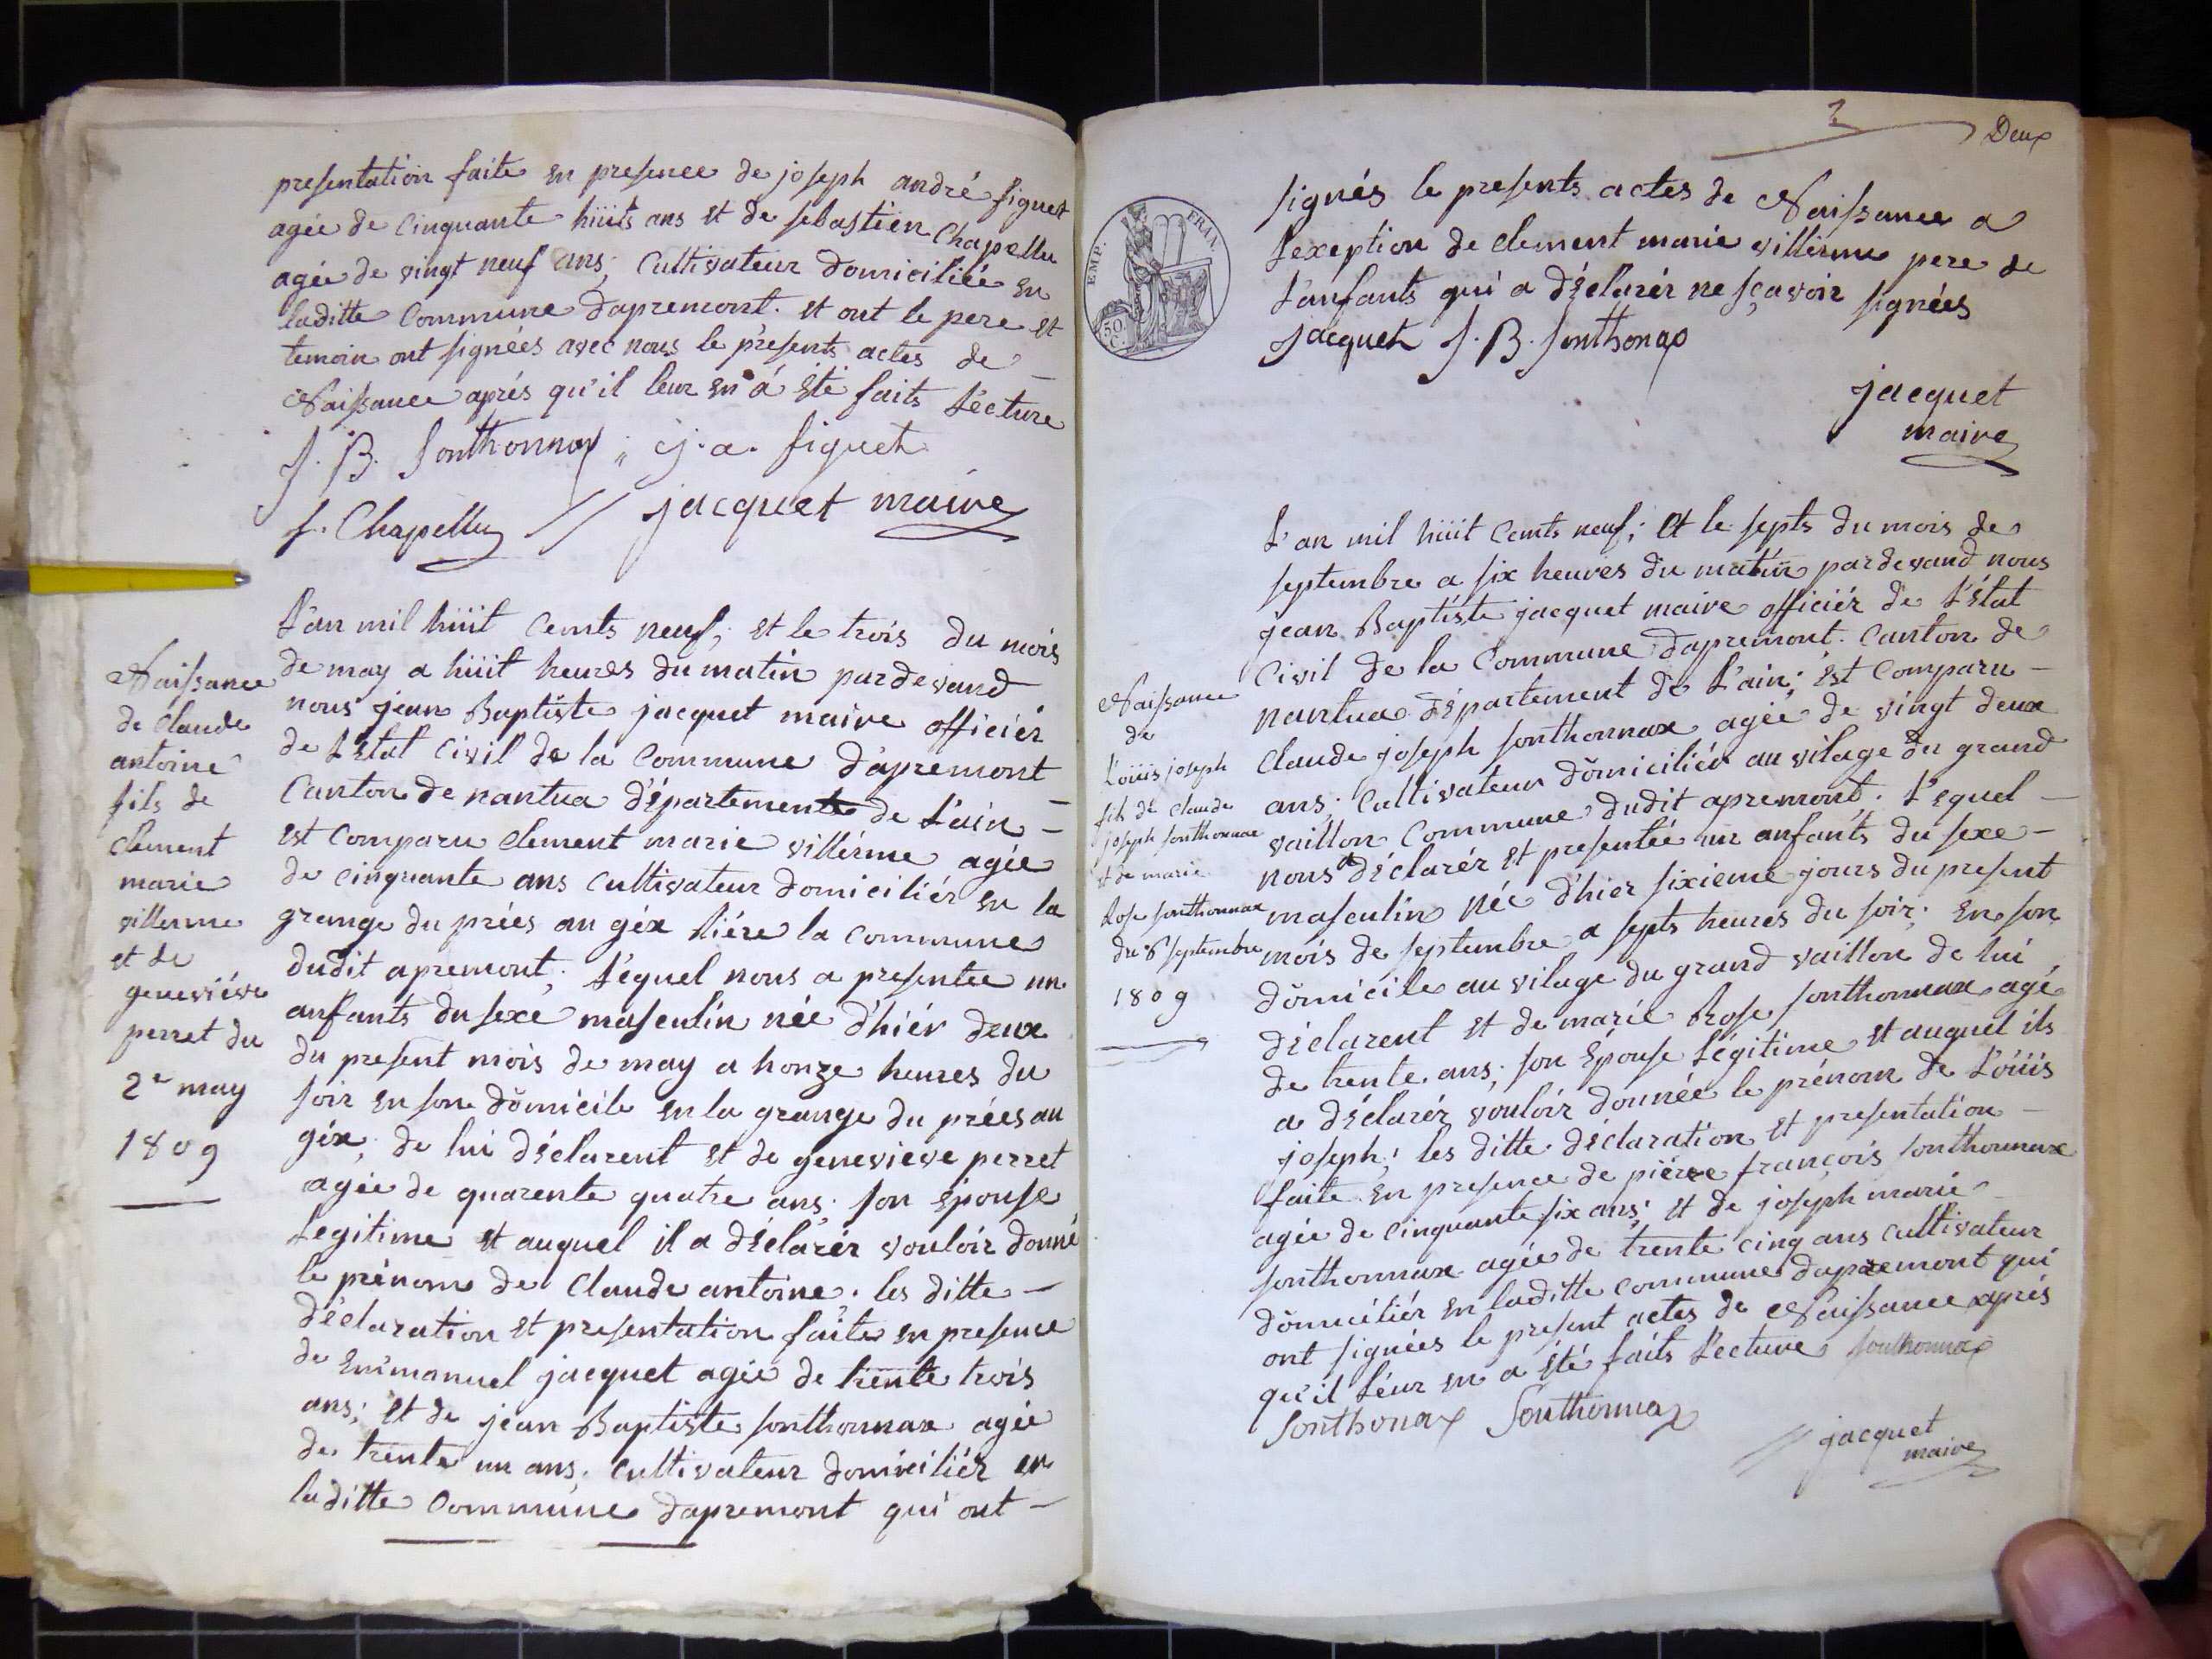 presentation faite en presence de joseph andré figuet
agée de Cinquante hüits ans et de sebastien Chapellu
agée de vingt neuf ans; Cultivateur domiciliée en
laditte Commune dapremont. et ont le pere et
temoin ont signées avec nous le présents actes de
Naissance aprés qu'il leur en à été faits Lécture
J. B. Sonthonnax j. a. figuet
s. Chapellu // jacquet maire
Naissance
de Claude
antoine
fils de
clement
marie
villerme
et de
geneviéve
perret du
2e may
1809
L'an mil hüit Cents neuf; et le trois du mois
de may a hüit heures du matin pardevand
nous jean Baptiste jacquet maire officiér
de L'état Civil de la Commune d'apremont
Canton de nantua département de L'ain
est Comparu Clement marie villérme agée
de cinquante ans Cultivateur domiciliér en la
grange du prées au géx liére la Commune
dudit apremont; Léquel nous a presentée un
anfants du sexe masculin née d'hiér deux
du present mois de may a honze heures du
soir en son domicile en la grange du prées au
géx; de lui déclarent et de genevieve perret
agée de quarente quatre ans; son épouse
Legitime et auquel il a déclarér vouloir donné
le prénom de Claude antoine. les ditte
déclaration et presentation faite en presence
de Emmanuel jacquet agée de trente trois
ans; et de jean Baptiste sonthonnax agée
de trente un ans; cultivateur domiciliér en
laditte Commune dapremont qui ont
2 Deux
EMP. FRAN.
50. C.
signés le presents actes de Naissance a
Lexeption de clement marie villérme pere de
L'anfants qui a déclarér ne sçavoir signées
Jacquet J. B. Sonthonax
jacquet
maire
Naissance
de
Loüis joseph
fils de Claude
joseph sonthonnax
et de marie
Rose sonthonnax
du 6 septembre
1809
L'an mil hüit Cents neuf; et le septs du mois de
septembre a six heures du matin pardevand nous
jean Baptiste jacquet maire officiér de L'état
Civil de la Commune dapremont. Canton de
nantua département de L'ain; est Comparu
Claude joseph sonthonnax agée de vingt deux
ans; Cultivateur domiciliér au vilage du grand
vaillon Commune dudit apremont; Léquel
nous a déclarér et presentée un anfants du sexe
masculin née d'hier sixieme jours du present
mois de septembre a septs heures du soir; en son
domicile au vilage du grand vaillon de lui
déclarent et de marie Rose sonthonnax agé
de trente ans; son épouse Légitime et auquel ils
a déclarér vouloir donnée le prénom de Loüis
joseph; les ditte déclaration et presentation
faite en presence de piérre françois sonthonnax
agée de cinquante six ans; et de joseph marie
sonthonnax agée de trente cinq ans cultivateur
domiciliér en laditte commune dapremont qui
ont signées le present actes de Naissance aprés
qu'il Léur en a été faits Lecture sonthonnax
Sonthonax Sonthonnax
// jacquet
maire